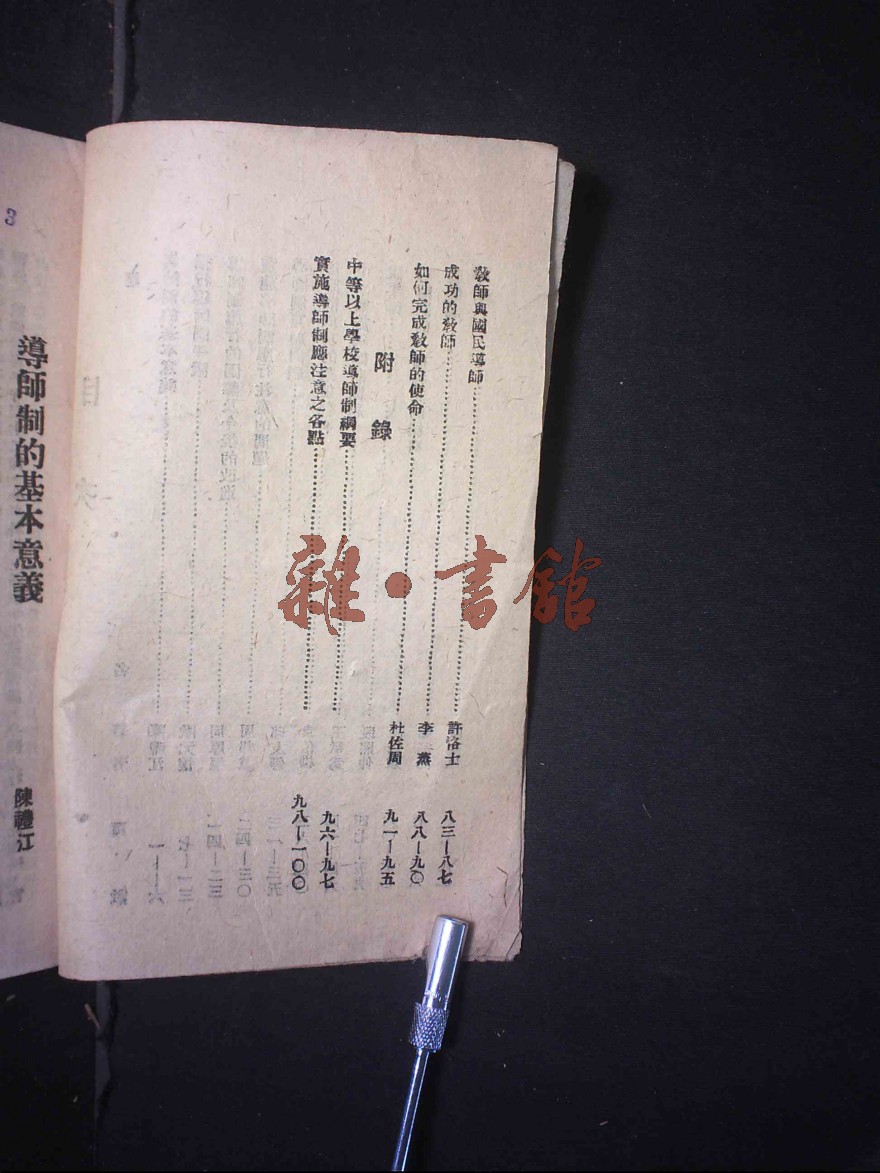 教師與國民導師 許洛士 八三—八七
成功的教師 李蒸 八八—九〇
如何完成教師的使命 杜佐周 九一—九五
附錄
中等以上學校導師制綱要 九六—九七
實施導師制應注意之各點 九八—一〇〇
導師制的基本意義
陳禮江
3
雜·書館